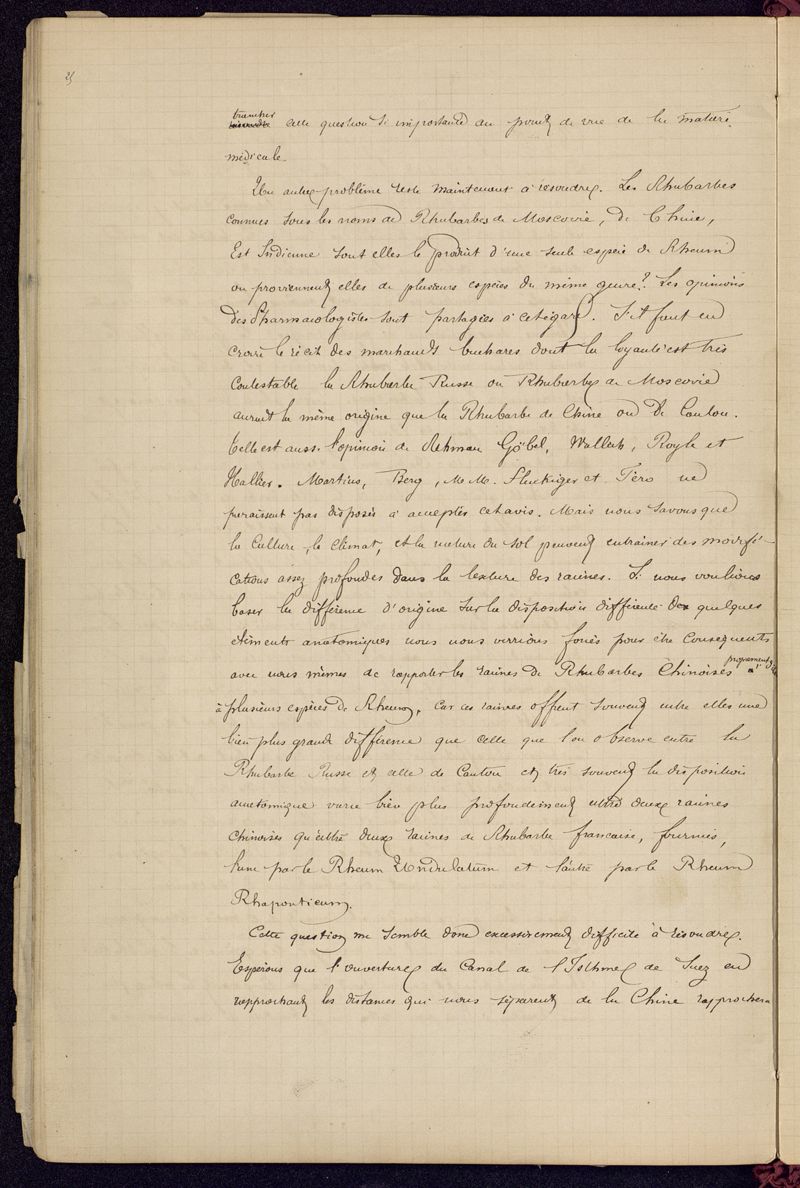 25
trancher
résoudre cette question si importante au point de vue de la matière
médicale.
Un autre problème reste maintenant à résoudre. Les Rhubarbes
connues sous les noms de Rhubarbes de Moscovie, de Chine,
Est Indienne sont elles le produit d'une seule espèce de Rheum
ou proviennent elles de plusieurs espèces du même genre? Les opinions
des Pharmacologistes sont partagées à cet égard. S'il faut en
croire le récit des marchands buchares dont la loyauté est très
contestable la Rhubarbe Russe ou Rhubarbe de Moscovie
aurait la même origine que la Rhubarbe de Chine ou de Canton.
Telle est aussi l'opinion de Rehman Göbel, Wallich, Royle et
Hallier. Martius, Berg, M.M. Fluckiger et Féro ne
paraissent pas disposés à accepter cet avis. Mais nous savons que
la culture, le climat, et la nature du sol peuvent entrainer des modifi-
cations assez profondes dans la texture des racines. Si nous voulions
baser la différence d'origine sur la disposition différente de quelques
éléments anatomiques nous nous verrions forcés pour être conséquents
avec nous mêmes de rapporter les racines de Rhubarbes Chinoises proprement dites
à plusieurs espèces de Rheum, car ces racines offrent souvent entre elles une
bien plus grande différence que celle que l'on observe entre la
Rhubarbe Russe et celle de Canton et très souvent la disposition
anatomique varie bien plus profondément entre deux racines
chinoises qu'entre deux racines de Rhubarbe française, fournies,
l'une par le Rheum Undulatum et l'autre par le Rheum
Rhaponticum.
Cette question me semble donc excessivement difficile à résoudre.
Espérons que l'ouverture du Canal de l'Isthme de Suez en
rapprochant les distances qui nous séparent de la Chine rapprochera